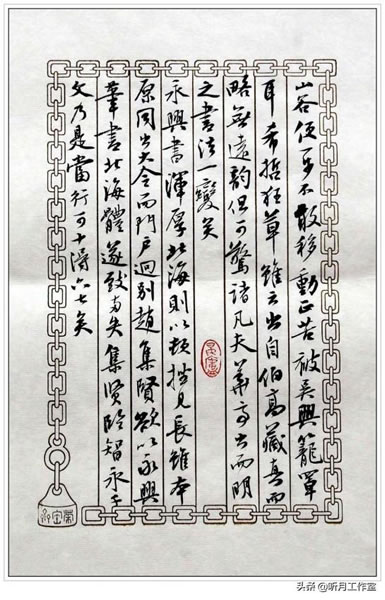 山谷便不敢移動正苦被吳興籠罩
耳希哲狂草雖云出自伯高藏真而
略無遠韻但可驚諸凡夫華亭出而明
之書法一變矣
永興書渾厚北海則以頓挫見長雖本
原同出大令而門戶迥別趙集賢欲以永興
筆書北海體遂致兩失集賢臨智永千
文乃是當行可十得六七矣
头条 @听月工作室